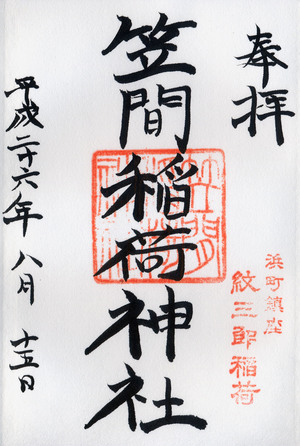 奉拝
浜町鎮座
紋三郎稲荷
笠間稲荷神社
平成二十六年八月十五日